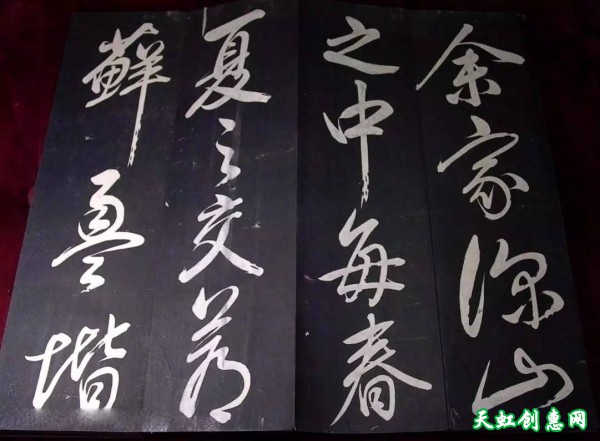 余家深山
之中每春
夏之交蒼
蘚盈堦
天虹创惠网